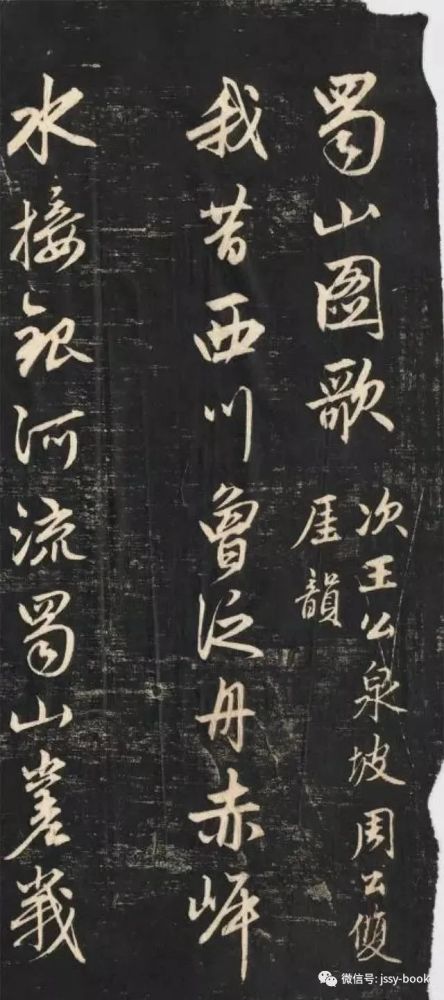 蜀山圖歌
次王公泉坡周公雙
厓韻
我昔西川曾泛舟赤岸
水接銀河流蜀山嵳峩
微信号: jssy-book